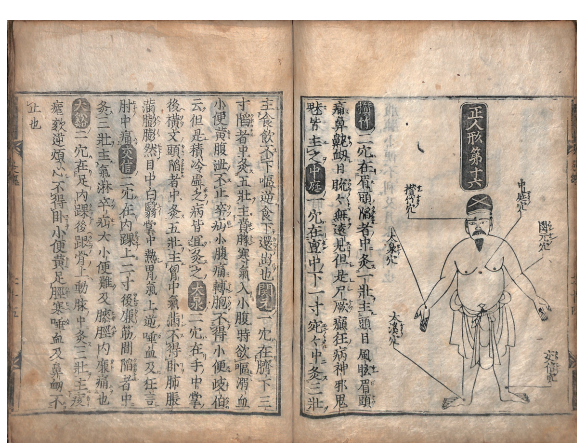 正人形第十六
中庭穴
關元穴
攢竹穴
大泉穴
大溪穴
交信穴
攢竹二穴在眉頭陷者中灸一壯主頭目風眩眉頭
痛鼻鼽衄目䀮䀮無遠見但是尸厥癲狂病神邪鬼
魅皆主之中庭一穴在亶中下一寸宛宛中灸三壯
主食飲不下嘔逆食下還出也關元一穴在臍下三
寸陷者中灸五壯主賁豚寒氣入小腹時欲嘔溺血
小便黃腹泄不止卒疝小腹痛轉胞不得小便岐伯
云但是積冷虛乏病皆宜灸之大泉二穴在手中掌
後橫文頭陷者中灸五壯主胸中氣滿不得卧肺脹
滿膨膨然目中白翳掌中熱胃氣上逆唾血及狂言
肘中痛交信二穴在內踝上二寸後廉筋間陷者中
灸三壯主氣淋卒疝大小便難及膝脛內廉痛也
大谿二穴在足內踝後跟骨上動脉中灸三壯主痎
瘧欬逆煩心不得卧小便黃足脛寒唾血及鼻衄不
止也